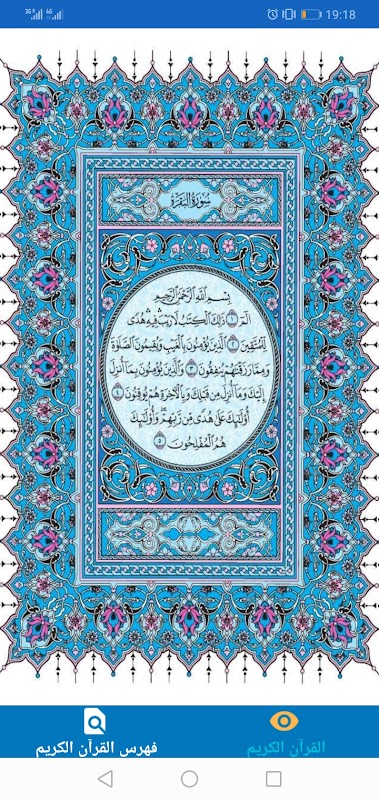 3G 4G 19:18
سُورَةُ البَقَرَة
بِسْمِ اللَّهِ الرَّحْمَٰنِ الرَّحِيمِ
الٓمٓ ۝١ ذَٰلِكَ الْكِتَٰبُ لَا رَيْبَ فِيهِ هُدًى
لِّلْمُتَّقِينَ ۝٢ الَّذِينَ يُؤْمِنُونَ بِالْغَيْبِ وَيُقِيمُونَ الصَّلَوٰةَ
وَمِمَّا رَزَقْنَٰهُمْ يُنفِقُونَ ۝٣ وَالَّذِينَ يُؤْمِنُونَ بِمَآ أُنزِلَ
إِلَيْكَ وَمَآ أُنزِلَ مِن قَبْلِكَ وَبِالْءَاخِرَةِ هُمْ يُوقِنُونَ ۝٤
أُولَٰٓئِكَ عَلَىٰ هُدًى مِّن رَّبِّهِمْ وَأُولَٰٓئِكَ
هُمُ الْمُفْلِحُونَ ۝٥
القرآن الكريم
فهرس القرآن الكريم